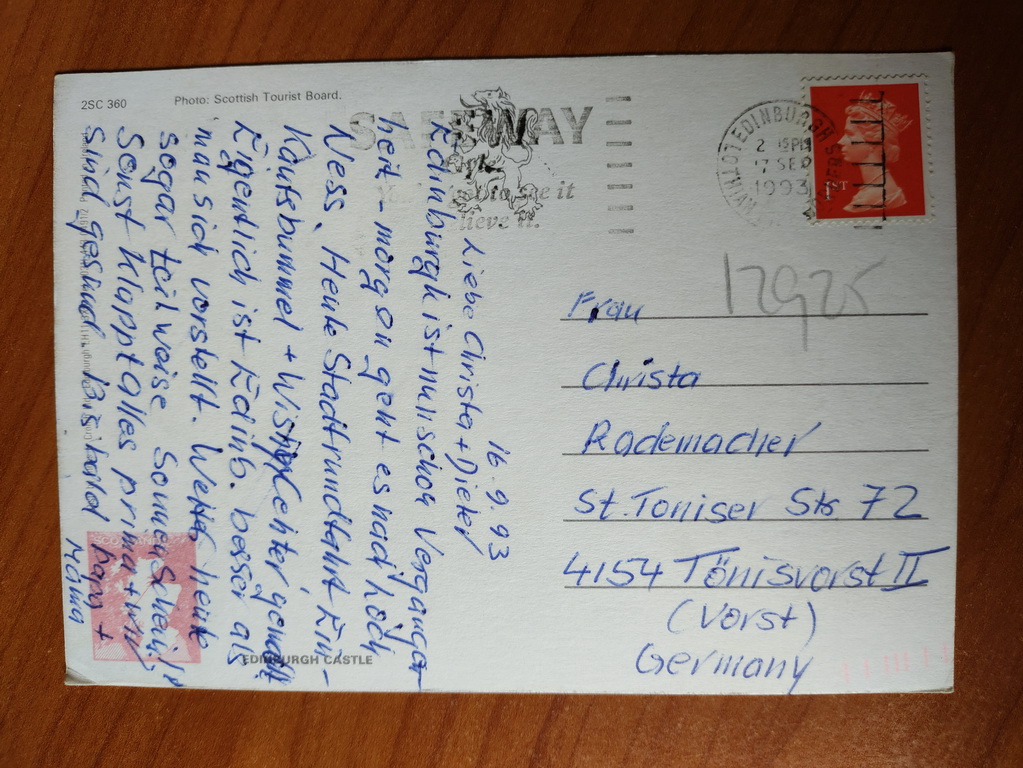 2SC 360
Photo: Scottish Tourist Board.
SAFEWAY
it
EDINBURGH
2 15PM
17 SEP
1993
1ST
16.9.93
Liebe Christa + Dieter
Edinburgh ist nun schon Vergangen-
heit - morgen geht es nach Loch
Ness. Heute Stadtrundfahrt Ein-
kaufsbummel + Wisky Center gemacht
Eigentlich ist Edinb. besser als
man sich vorstellt. Wetter heute
sogar teilweise Sonnenschein!
Sonst klappt alles prima + wir
sind gesund. Bis bald Papa +
Mama
12925
Frau
Christa
Rademacher
St. Töniser Str. 72
4154 Tönisvorst II
(Vorst)
Germany
EDINBURGH CASTLE